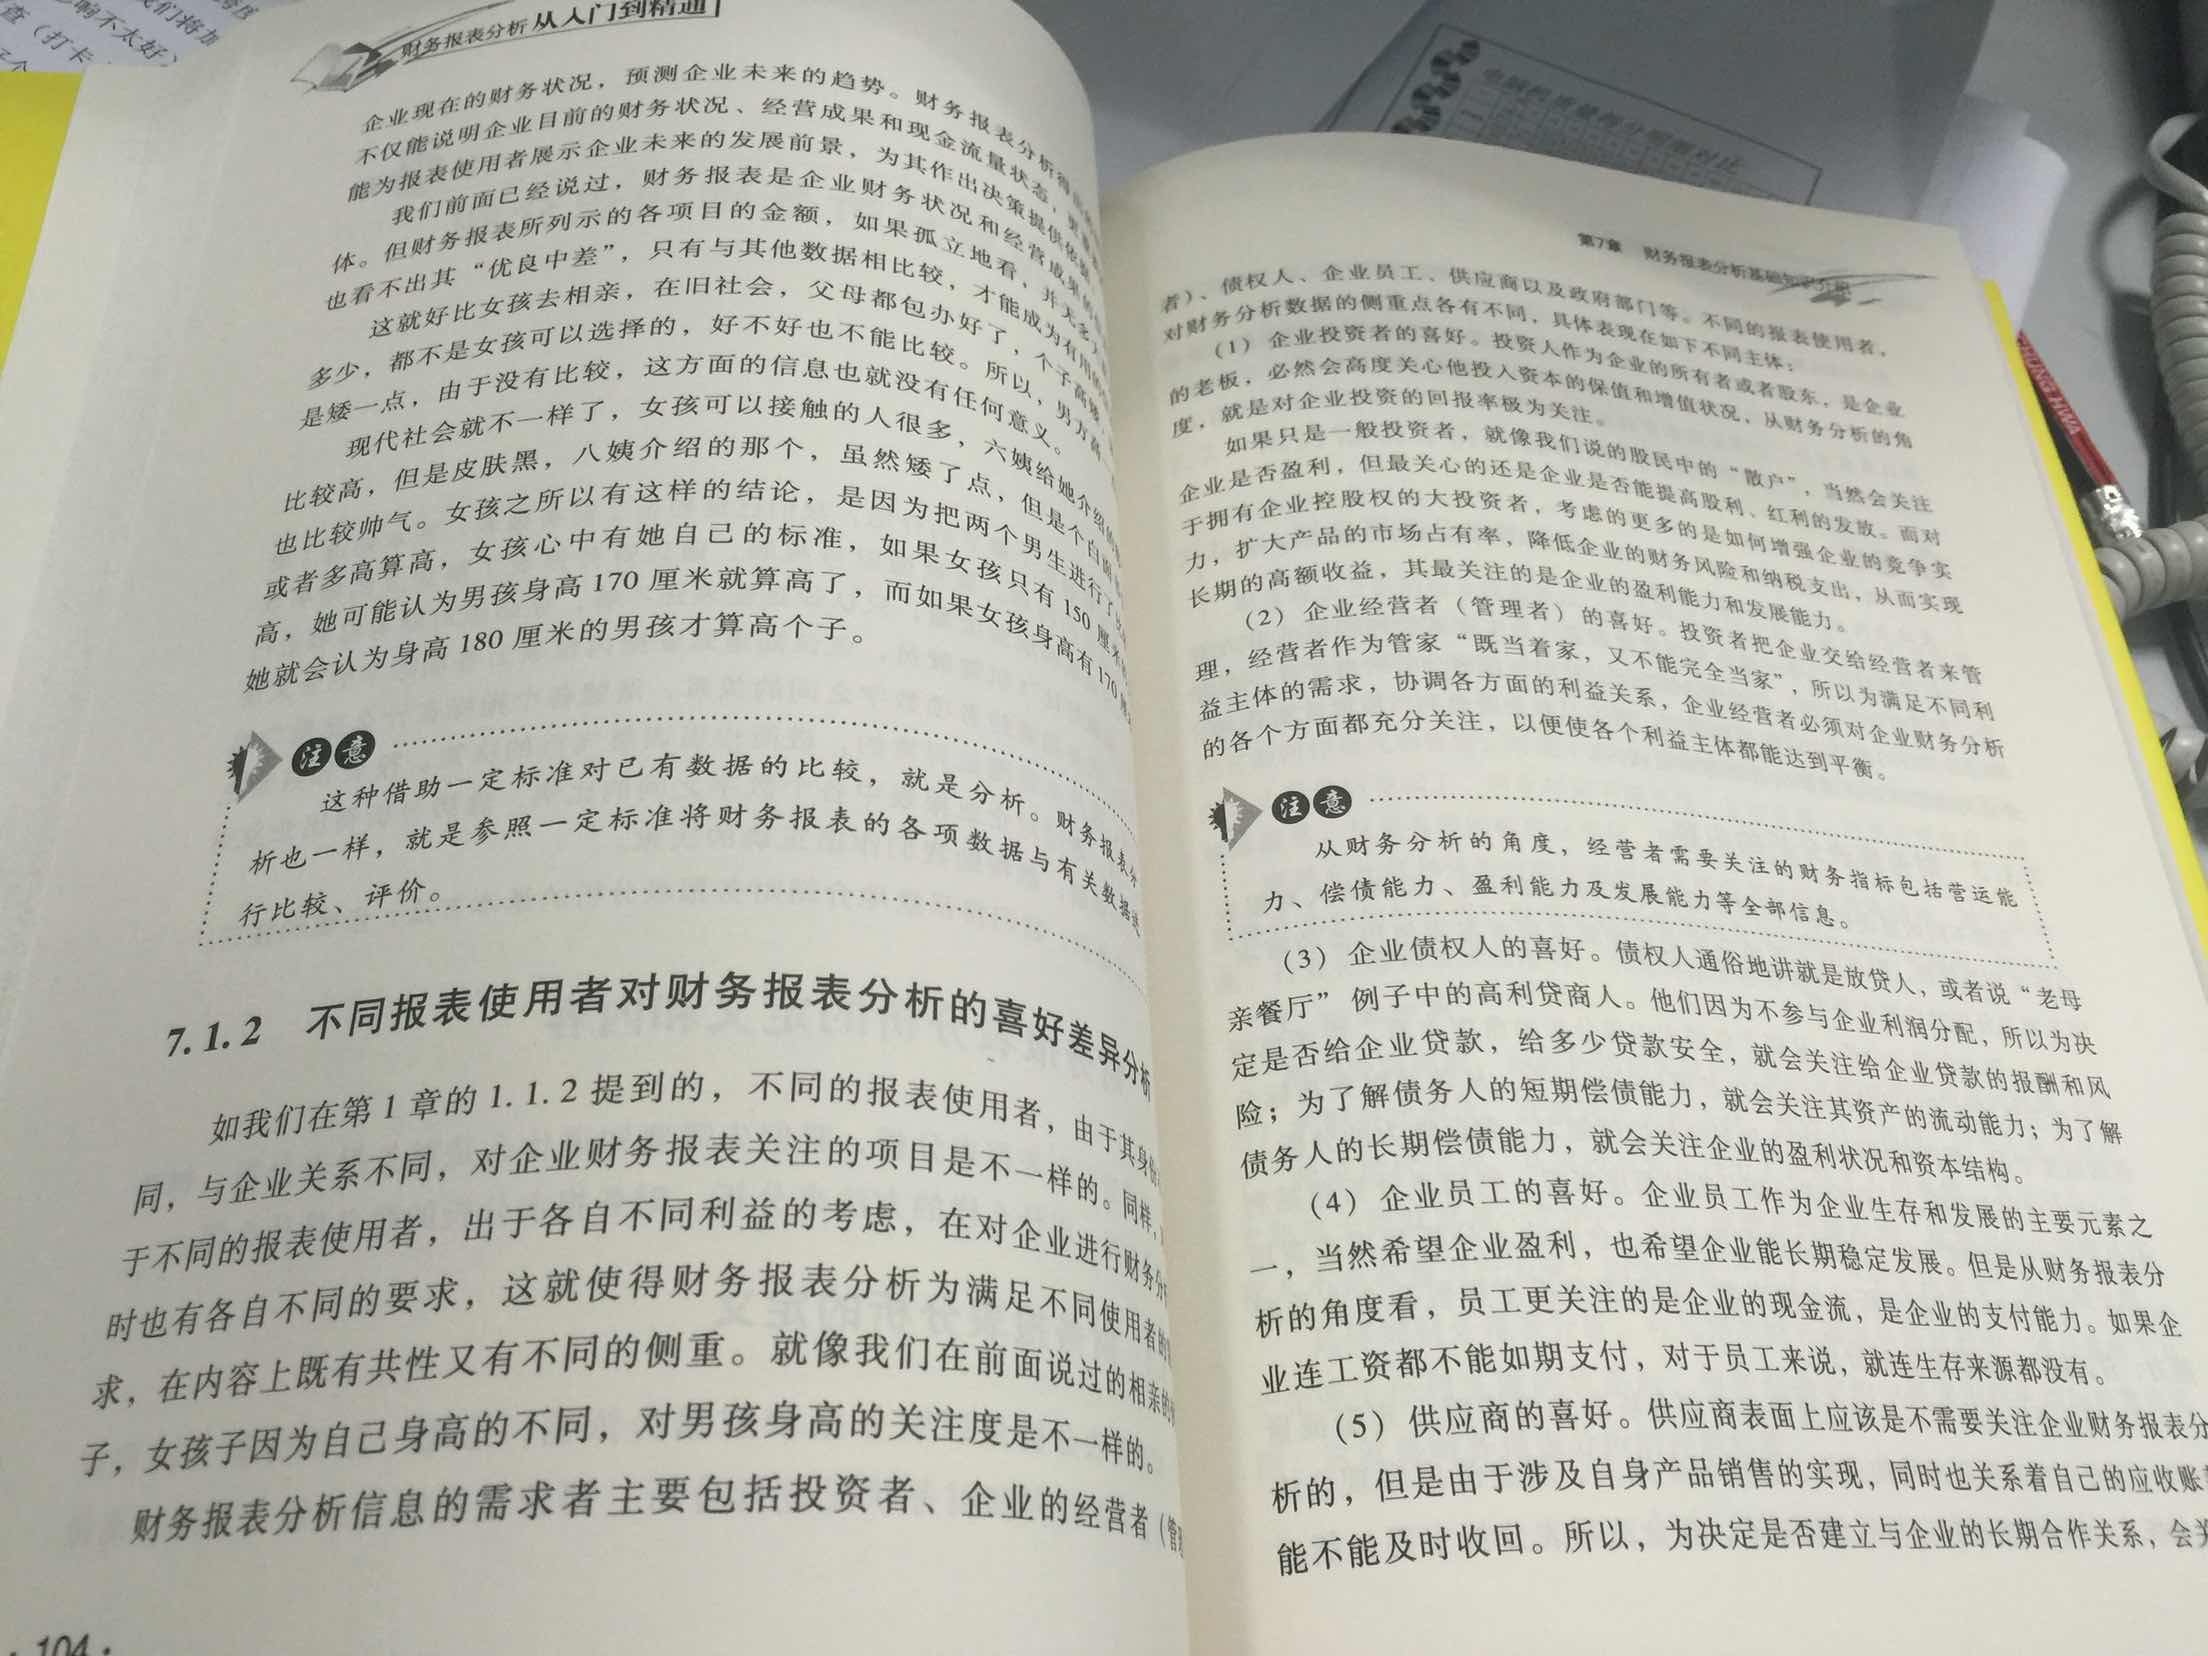 财务报表分析从入门到精通
企业现在的财务状况，预测企业未来的趋势。财务报表分析得
不仅能说明企业目前的财务状况、经营成果和现金流量状态，更
能为报表使用者展示企业未来的发展前景，为其作出决策提供依据
我们前面已经说过，财务报表是企业财务状况和经营成果的
体。但财务报表所列示的各项目的金额，如果孤立地看，并无多大
也看不出其“优良中差”，只有与其他数据相比较，才能成为有用的
这就好比女孩去相亲，在旧社会，父母都包办好了，个子高矮
多少，都不是女孩可以选择的，好不好也不能比较。所以，男方高
是矮一点，由于没有比较，这方面的信息也就没有任何意义。
现代社会就不一样了，女孩可以接触的人很多，六姨给她介绍的
比较高，但是皮肤黑，八姨介绍的那个，虽然矮了点，但是个白面
也比较帅气。女孩之所以有这样的结论，是因为把两个男生进行了
或者多高算高，女孩心中有她自己的标准，如果女孩只有 150 厘米
高，她可能认为男孩身高 170 厘米就算高了，而如果女孩身高有 170 厘
她就会认为身高 180 厘米的男孩才算高个子。
注意
这种借助一定标准对已有数据的比较，就是分析。财务报表分
析也一样，就是参照一定标准将财务报表的各项数据与有关数据进
行比较、评价。
7.1.2 不同报表使用者对财务报表分析的喜好差异分析
如我们在第 1 章的 1.1.2 提到的，不同的报表使用者，由于其身份
同，与企业关系不同，对企业财务报表关注的项目是不一样的。同样，
于不同的报表使用者，出于各自不同利益的考虑，在对企业进行财务分
时也有各自不同的要求，这就使得财务报表分析为满足不同使用者的
求，在内容上既有共性又有不同的侧重。就像我们在前面说过的相亲的
子，女孩子因为自己身高的不同，对男孩身高的关注度是不一样的。
财务报表分析信息的需求者主要包括投资者、企业的经营者（管理
· 104 ·
第7章 财务报表分析基础知识
者）、债权人、企业员工、供应商以及政府部门等。不同的报表使用者，
对财务分析数据的侧重点各有不同，具体表现在如下不同主体：
（1）企业投资者的喜好。投资人作为企业的所有者或者股东，是企业
的老板，必然会高度关心他投入资本的保值和增值状况，从财务分析的角
度，就是对企业投资的回报率极为关注。
如果只是一般投资者，就像我们说的股民中的“散户”，当然会关注
企业是否盈利，但最关心的还是企业是否能提高股利、红利的发放。而对
于拥有企业控股权的大投资者，考虑的更多的是如何增强企业的竞争实
力，扩大产品的市场占有率，降低企业的财务风险和纳税支出，从而实现
长期的高额收益，其最关注的是企业的盈利能力和发展能力。
（2）企业经营者（管理者）的喜好。投资者把企业交给经营者来管
理，经营者作为管家“既当着家，又不能完全当家”，所以为满足不同利
益主体的需求，协调各方面的利益关系，企业经营者必须对企业财务分析
的各个方面都充分关注，以便使各个利益主体都能达到平衡。
注意
从财务分析的角度，经营者需要关注的财务指标包括营运能
力、偿债能力、盈利能力及发展能力等全部信息。
（3）企业债权人的喜好。债权人通俗地讲就是放贷人，或者说“老母
亲餐厅”例子中的高利贷商人。他们因为不参与企业利润分配，所以为决
定是否给企业贷款，给多少贷款安全，就会关注给企业贷款的报酬和风
险；为了解债务人的短期偿债能力，就会关注其资产的流动能力；为了解
债务人的长期偿债能力，就会关注企业的盈利状况和资本结构。
（4）企业员工的喜好。企业员工作为企业生存和发展的主要元素之
一，当然希望企业盈利，也希望企业能长期稳定发展。但是从财务报表分
析的角度看，员工更关注的是企业的现金流，是企业的支付能力。如果企
业连工资都不能如期支付，对于员工来说，就连生存来源都没有。
（5）供应商的喜好。供应商表面上应该是不需要关注企业财务报表分
析的，但是由于涉及自身产品销售的实现，同时也关系着自己的应收账
能不能及时收回。所以，为决定是否建立与企业的长期合作关系，会关
HUNG HWA